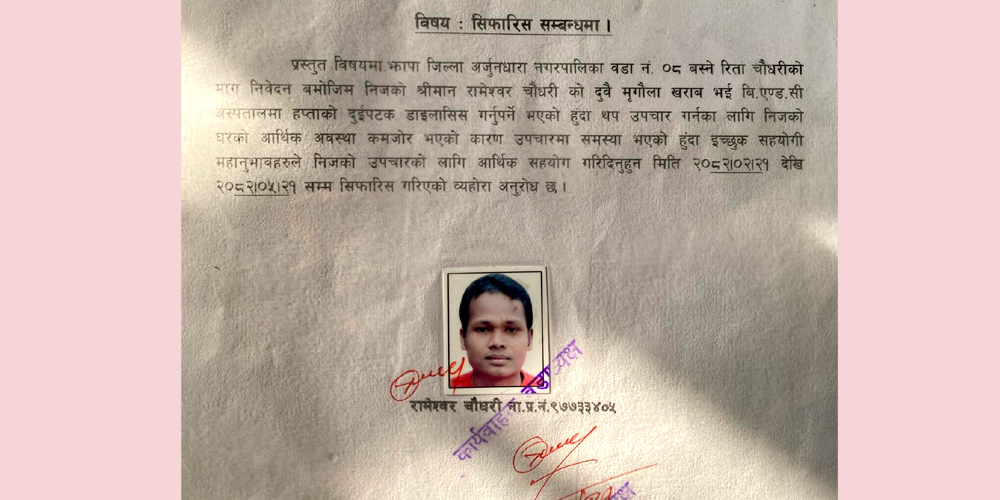 विषय : सिफारिस सम्बन्धमा ।
प्रस्तुत विषयमा झापा जिल्ला अर्जुनधारा नगरपालिका वडा नं. ०८ बस्ने रिता चौधरीको
माग निवेदन बमोजिम निजको श्रीमान रामेश्वर चौधरी को दुवै मृगौला खराब भई बि.एण्ड.सी
अस्पतालमा हप्ताको दुईपटक डाइलासिस गर्नुपर्ने भएको हुंदा थप उपचार गर्नका लागि निजको
घरको आर्थिक अवस्था कमजोर भएको कारण उपचारमा समस्या भएको हुंदा इच्छुक सहयोगी
महानुभावहरुले निजको उपचारको लागि आर्थिक सहयोग गरिदिनुहुन मिति २०८२।०२।२१ देखि
२०८२।०५।२१ सम्म सिफारिस गरिएको व्यहोरा अनुरोध छ ।
रामेश्वर चौधरी ना.प्र.नं.९७७३३४०५
कार्यवाहक वडाध्यक्ष